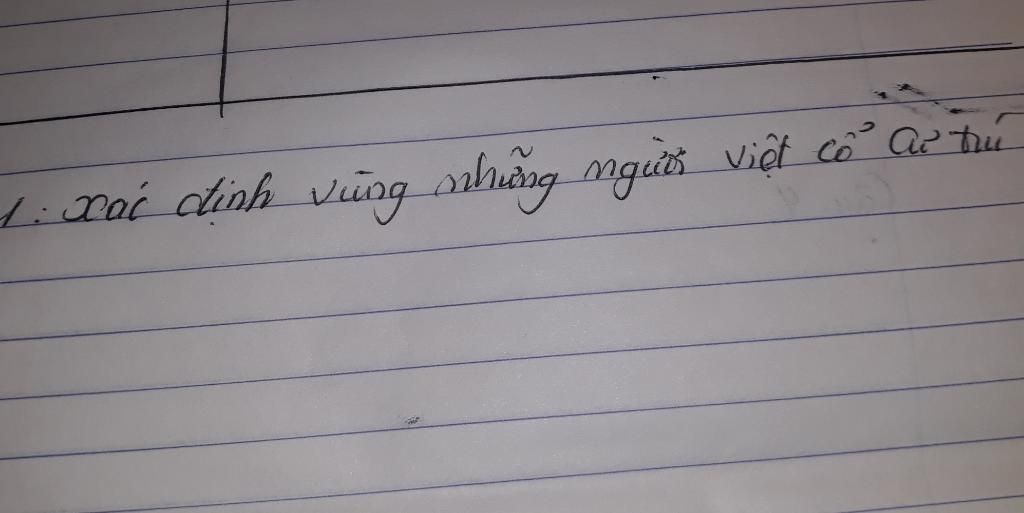 1: xác định vùng những người việt cổ cư trú